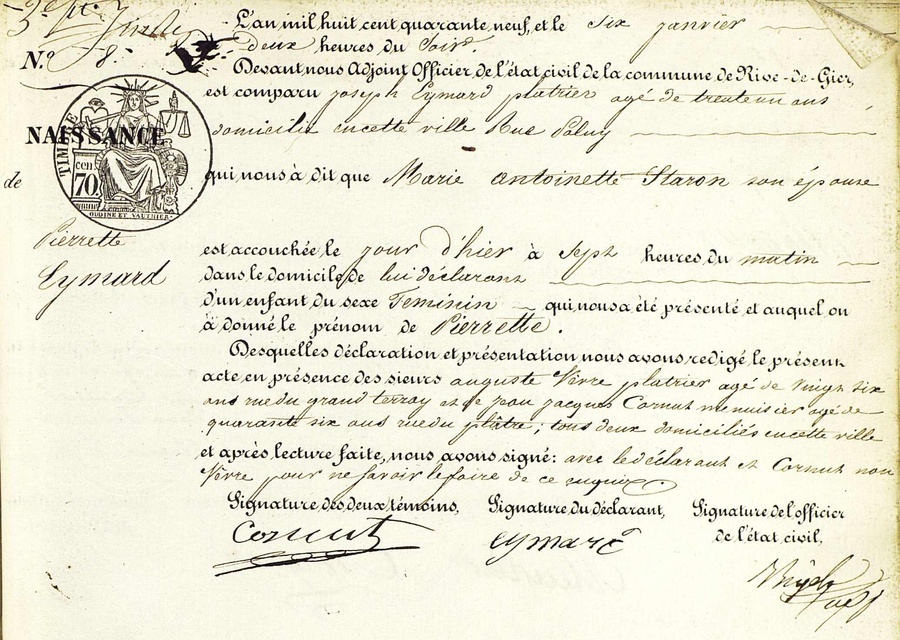 N.o 8.
L'an mil huit cent quarante neuf, et le Six janvier
deux heures du Soir.
Devant nous Adjoint Officier de l'état civil de la commune de Rive-de-Gier,
est comparu joseph Eymard platrier agé de trente un ans
domicilié en cette ville Rue
NAISSANCE
TIMBRE
cen
70
OUDINÉ ET VAUTHIER
de
qui nous à dit que Marie antoinette Staron son épouse
Pierrette
Eymard
est accouchée le jour d'hier à Sept heures du matin
dans le domicile de lui déclarant
d'un enfant du sexe Feminin qui nous a été présenté et auquel on
à donné le prénom de Pierrette.
Desquelles déclaration et présentation nous avons redigé le présent
acte en présence des sieurs auguste Verre platrier agé de vingt six
ans rue du grand et de jean jacques Cornut menuisier agé de
quarante six ans rue du plâtre; tous deux domiciliés en cette ville
et après lecture faite, nous avons signé: avec le déclarant et Cornut non
Verre pour ne savoir le faire de ce
Signature des deux témoins, Signature du déclarant, Signature de l'officier
de l'état civil,
Cornut eymard